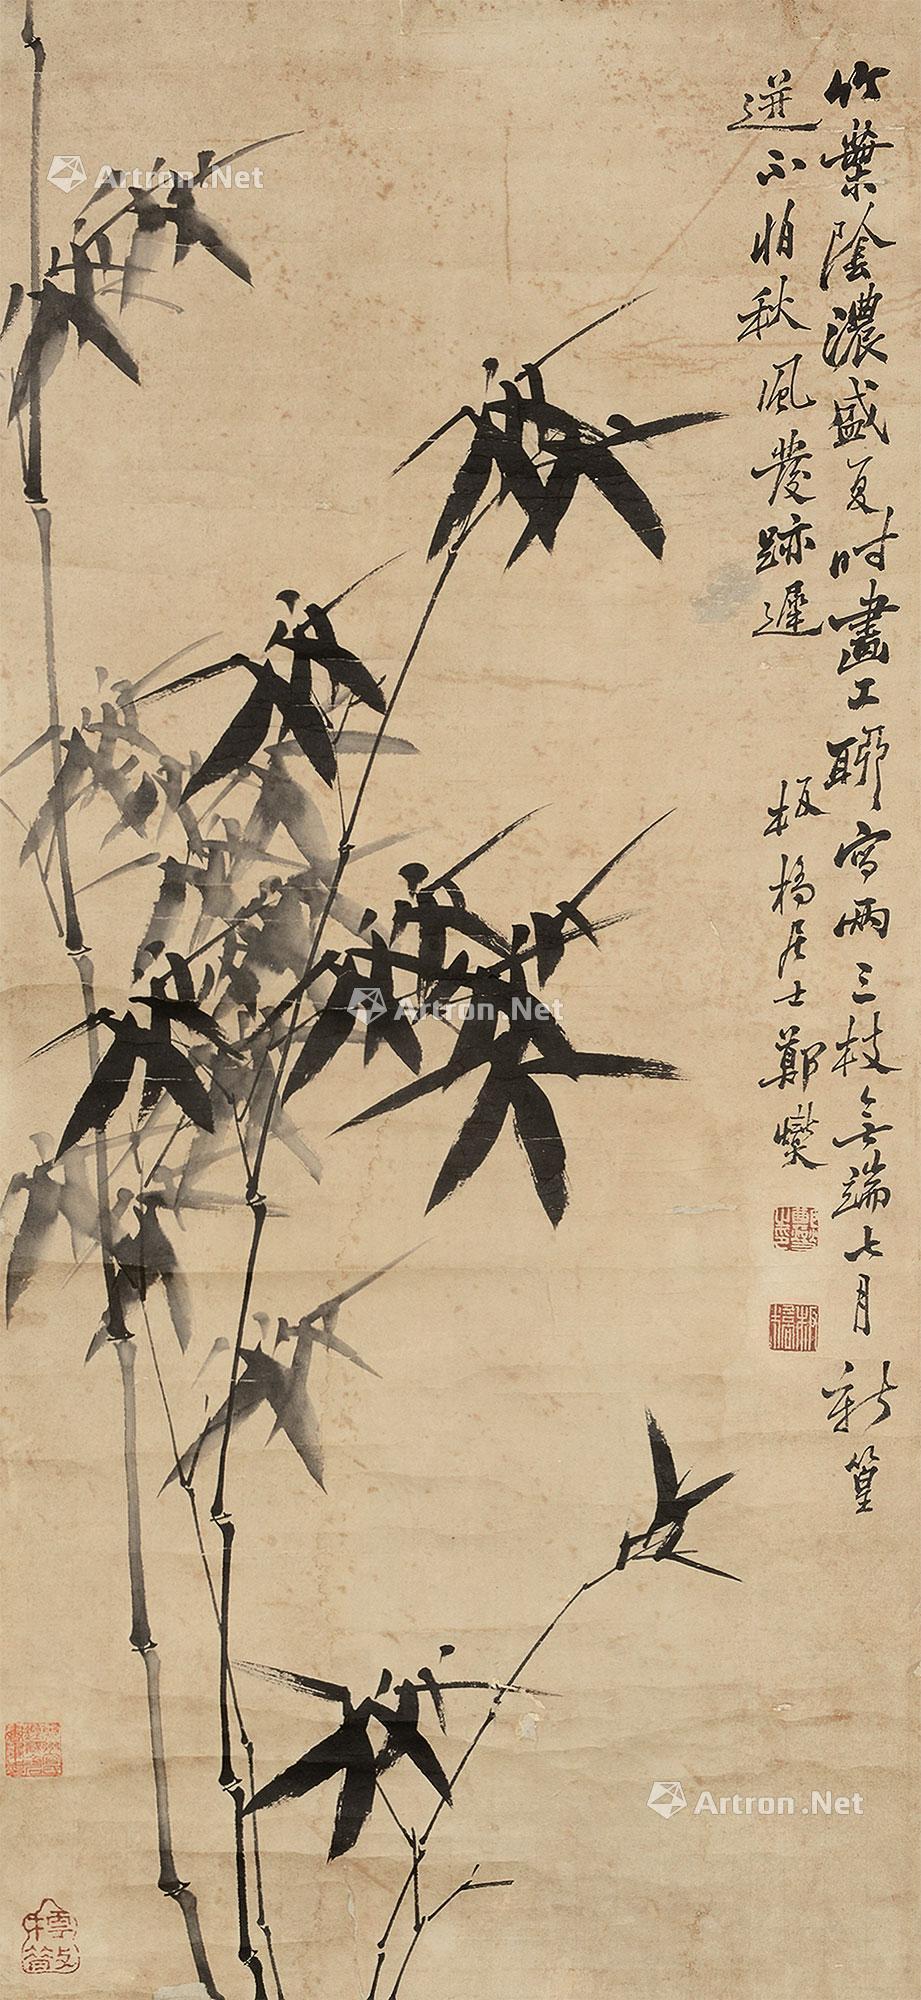 竹葉陰濃盛夏时畫工聊寫兩三枝無端七月新篁
迸不怕秋風發跡遲
板橋居士鄭燮
鄭燮之印
板橋
Artron.Net
Artron.Net
Artron.Net